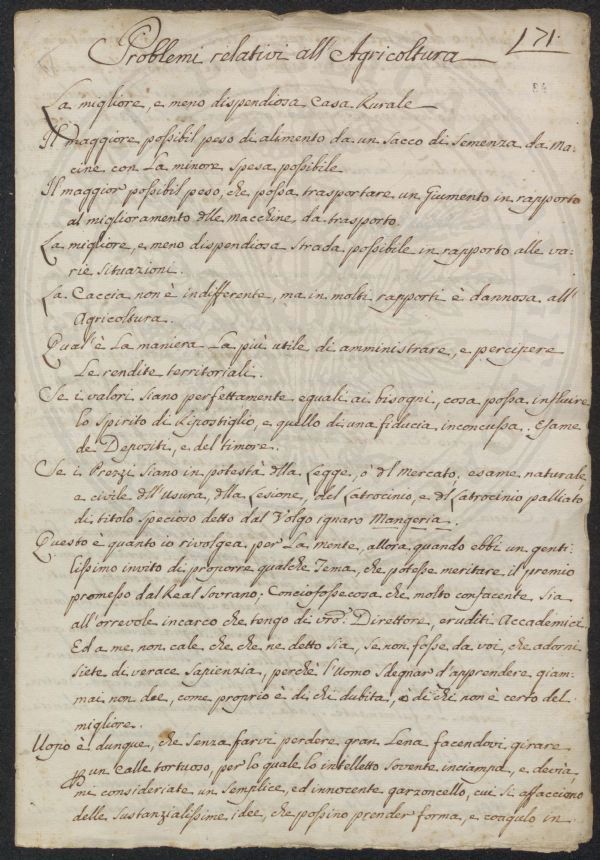 Problemi relativi all'Agricoltura
171.
84
La migliore, e meno dispendiosa Casa Rurale
Il maggiore possibil peso di alimento da un sacco di semenza da Ma-
cine con La minore spesa possibile
Il maggior possibil peso, che possa trasportare un Giumento in rapporto
al miglioramento dlle macchine da trasporto
La migliore, e meno dispendiosa strada possibile in rapporto alle va-
rie situazioni.
La Caccia non è indifferente, ma in molti rapporti è dannosa all'
Agricoltura.
Qual'è La maniera La più utile di amministrare, e percipere
Le rendite territoriali.
Se i valori siano perfettamente eguali ai bisogni, cosa possa influire
lo spirito di Ripostiglio, e quello di una fiducia inconcussa. Esame
de Depositi, e del timore.
Se i Prezzi siano in potestà dlla Legge, ò dl Mercato, esame naturale,
e civile dll'Usura, dlla Lesione, del Latrocinio, e dl Latrocinio palliato
di titolo specioso detto dal Volgo ignaro Mangeria.
Questo è quanto io rivolgea per La mente, allora quando ebbi un genti-
lissimo invito di proporre qualche Tema, che potesse meritare il premio
promesso dal Real Sovrano; Conciofossecosa che molto confacente sia
all'orrevole incarco che tengo di vro: Direttore, eruditi Accademici
Ed a me non cale che che ne detto sia, se non fosse da voi, che adorni
siete di verace sapienzia, perchè l'Uomo sdegnar d'apprendere giam-
mai non dee, come proprio è di chi dubita, ò di chi non è certo del
migliore.
Uopo è dunque, che senza farvi perdere gran Lena facendovi girare
p un Calle tortuoso, per lo quale lo intelletto sovente inciampa, e devia,
mi consideriate un semplice, ed innocente garzoncello, cui si affacciono
delle sustanzialissime idee, che possino prender forma, e coagulo in